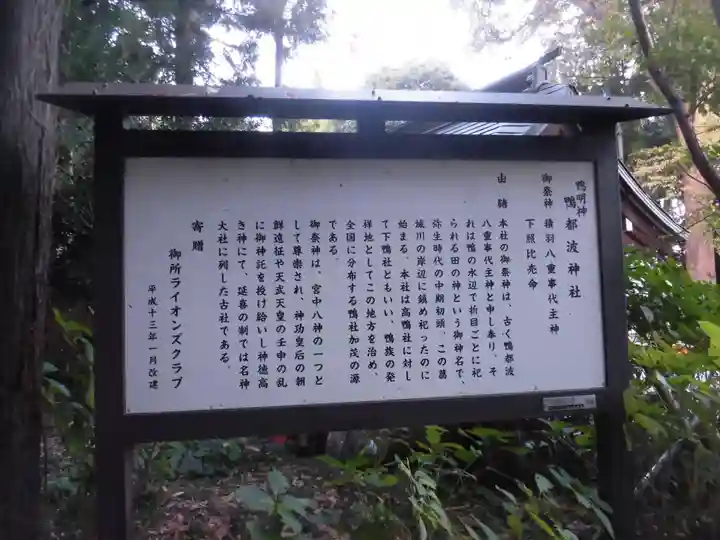 鴨明神
鴨都波神社
御祭神 積羽八重事代主神
下照比売命
山緒 本社の御祭神は、古く鴨都波
八重事代主神と申し奉り、そ
れは鴨の水辺で折目ごとに祀
られる田の神という御神名で、
弥生時代の中期初頭、この葛
城川の岸辺に鎮め祀ったのに
始まる。本社は高鴨社に対し
て下鴨社ともいい、鴨族の発
祥地としてこの地方を治め、
全国に分布する鴨社加茂の源
である。
御祭神は、宮中八神の一つと
して尊崇され、神功皇后の朝
鮮遠征や天武天皇の壬申の乱
に御神託を授け給いし神徳高
き神にて、延喜の制では名神
大社に列した古社である。
寄贈
御所ライオンズクラブ
平成十三年一月改建